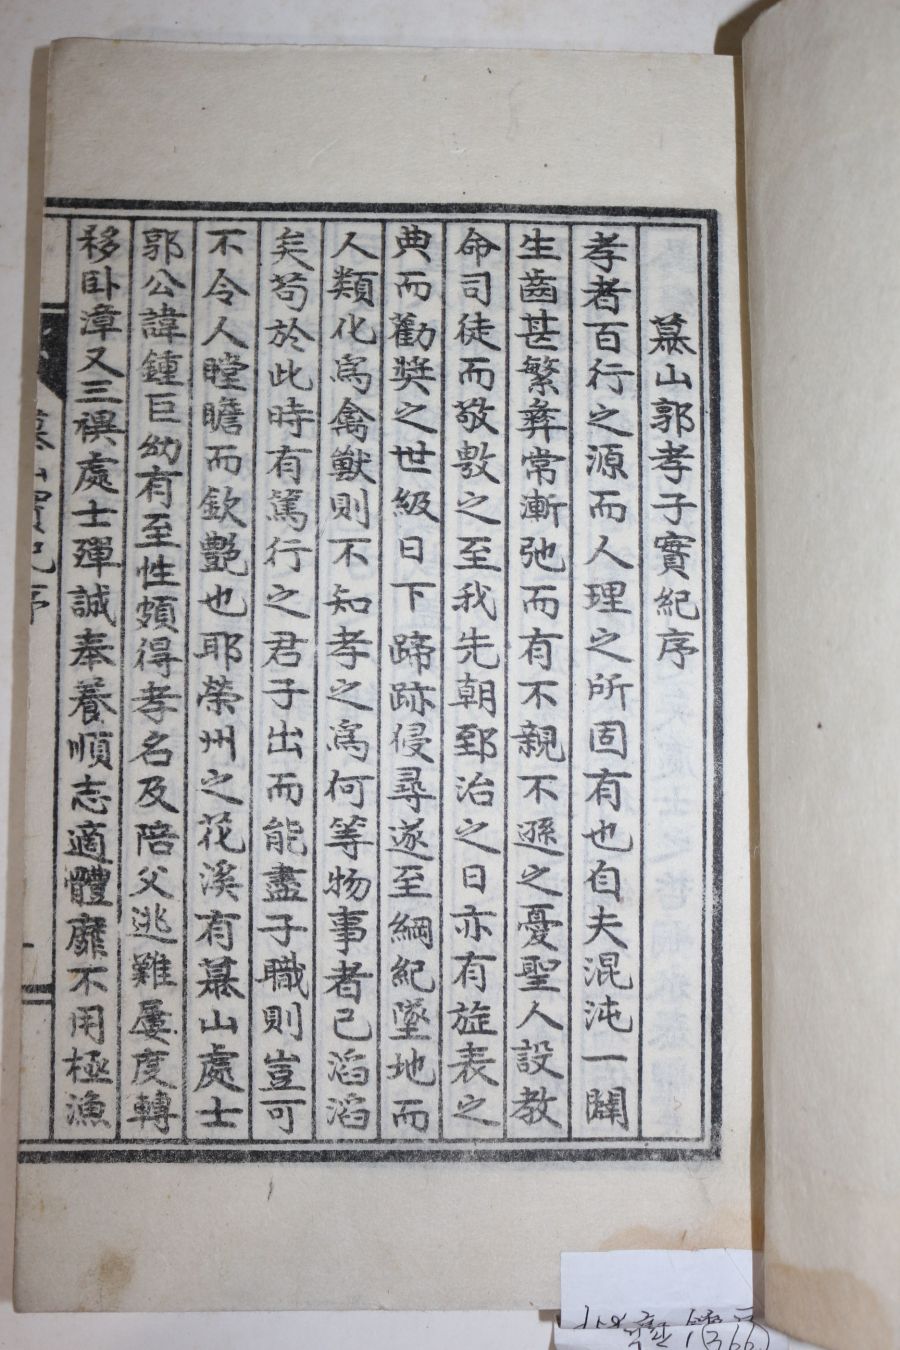 慕山郭孝子實紀序
孝者百行之源而人理之所固有也自夫混沌一闢
生齒甚繁彜常漸弛而有不親不遜之憂聖人設教
命司徒而敬敷之至我先朝郅治之日亦有旌表之
典而勸獎之世級日下蹄跡侵尋遂至綱紀墜地而
人類化爲禽獸則不知孝之爲何等物事者已滔滔
矣苟於此時有篤行之君子出而能盡子職則豈可
不令人瞠瞻而欽艶也耶榮州之花溪有慕山處士
郭公諱鍾巨幼有至性頗得孝名及陪父逃難屢度轉
移卧漳又三禩處士殫誠奉養順志適體靡不用極漁
慕山實紀序
(366)